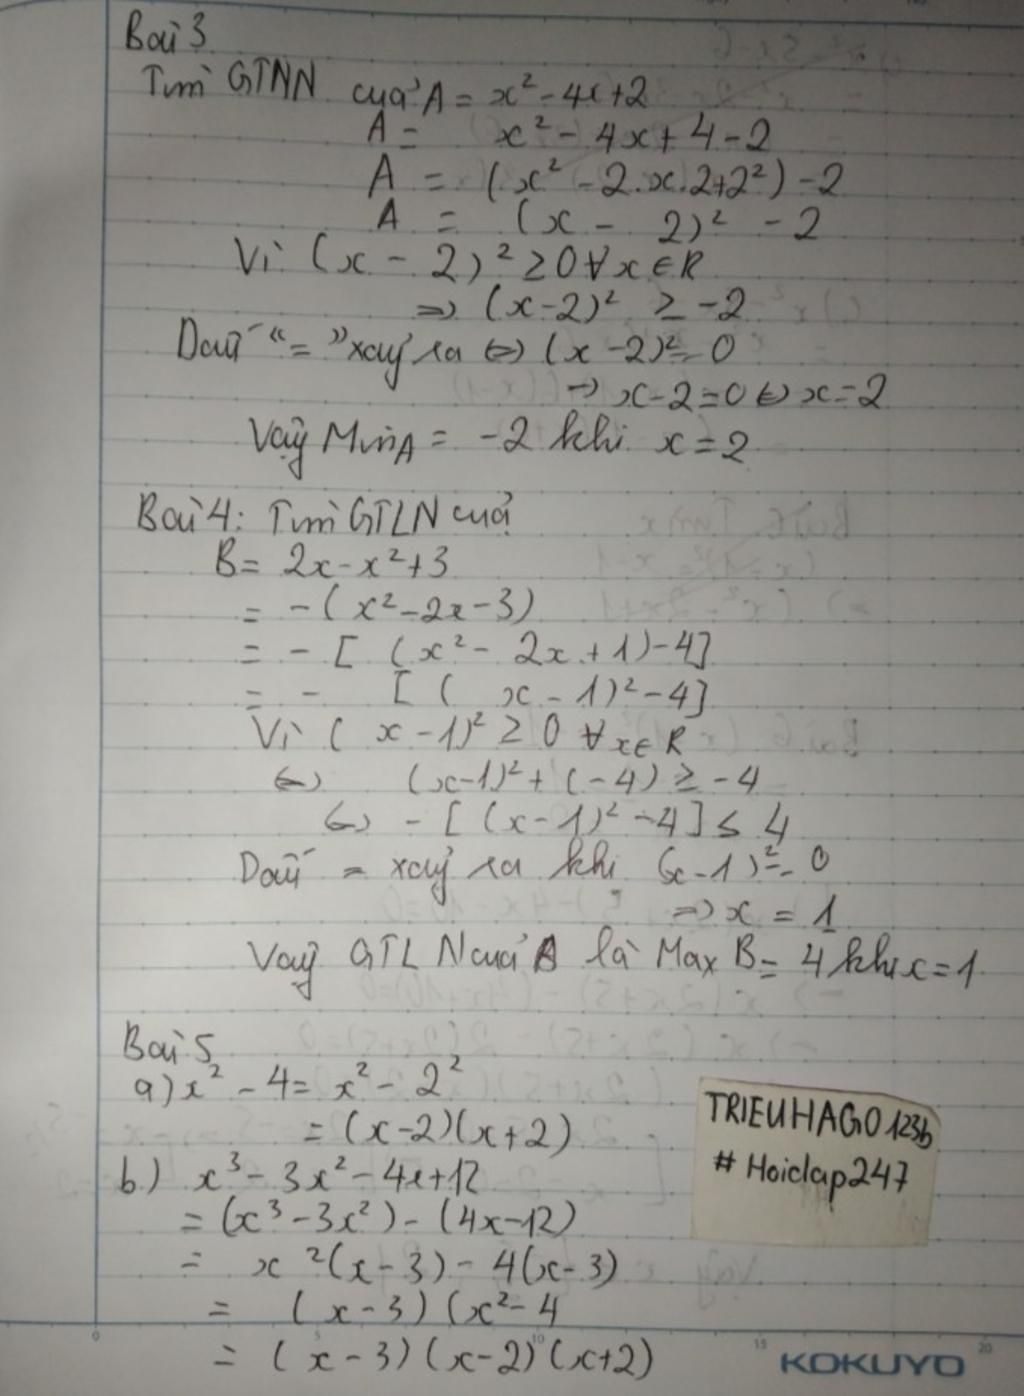 Bài 3
Tìm GTNN của A = x² - 4x + 2
A = x² - 4x + 4 - 2
A = (x² - 2.x.2+2²) - 2
A = (x - 2)² - 2
Vì (x - 2)² ≥ 0 ∀ x ∈ R
=> (x-2)² ≥ -2
Dấu "=" xảy ra <=> (x -2)² = 0
-> x-2=0 <=> x=2
Vậy MinA = -2 khi x = 2
Bài 4: Tìm GTLN của
B= 2x - x² + 3
= -(x² - 2x - 3)
= - [ (x² - 2x + 1) - 4]
= - [ ( x - 1)² - 4]
Vì ( x - 1)² ≥ 0 ∀ x ∈ R
<=> (x-1)² + (-4) ≥ -4
<=> - [ (x - 1)² - 4] ≤ 4
Dấu = xảy ra khi (x - 1)² = 0
=> x = 1
Vậy GTLN của B là Max B = 4 khi x = 1
Bài 5
a) x² - 4 = x² - 2²
= (x-2)(x+2)
b) x³ - 3x² - 4x + 12
= (x³ - 3x²) - (4x - 12)
= x²(x - 3) - 4(x - 3)
= (x - 3) (x² - 4
= (x - 3) (x - 2) (x+2)
TRIEUHAGO123b
# Hoidap247
0 5 10 15 20
KOKUYO